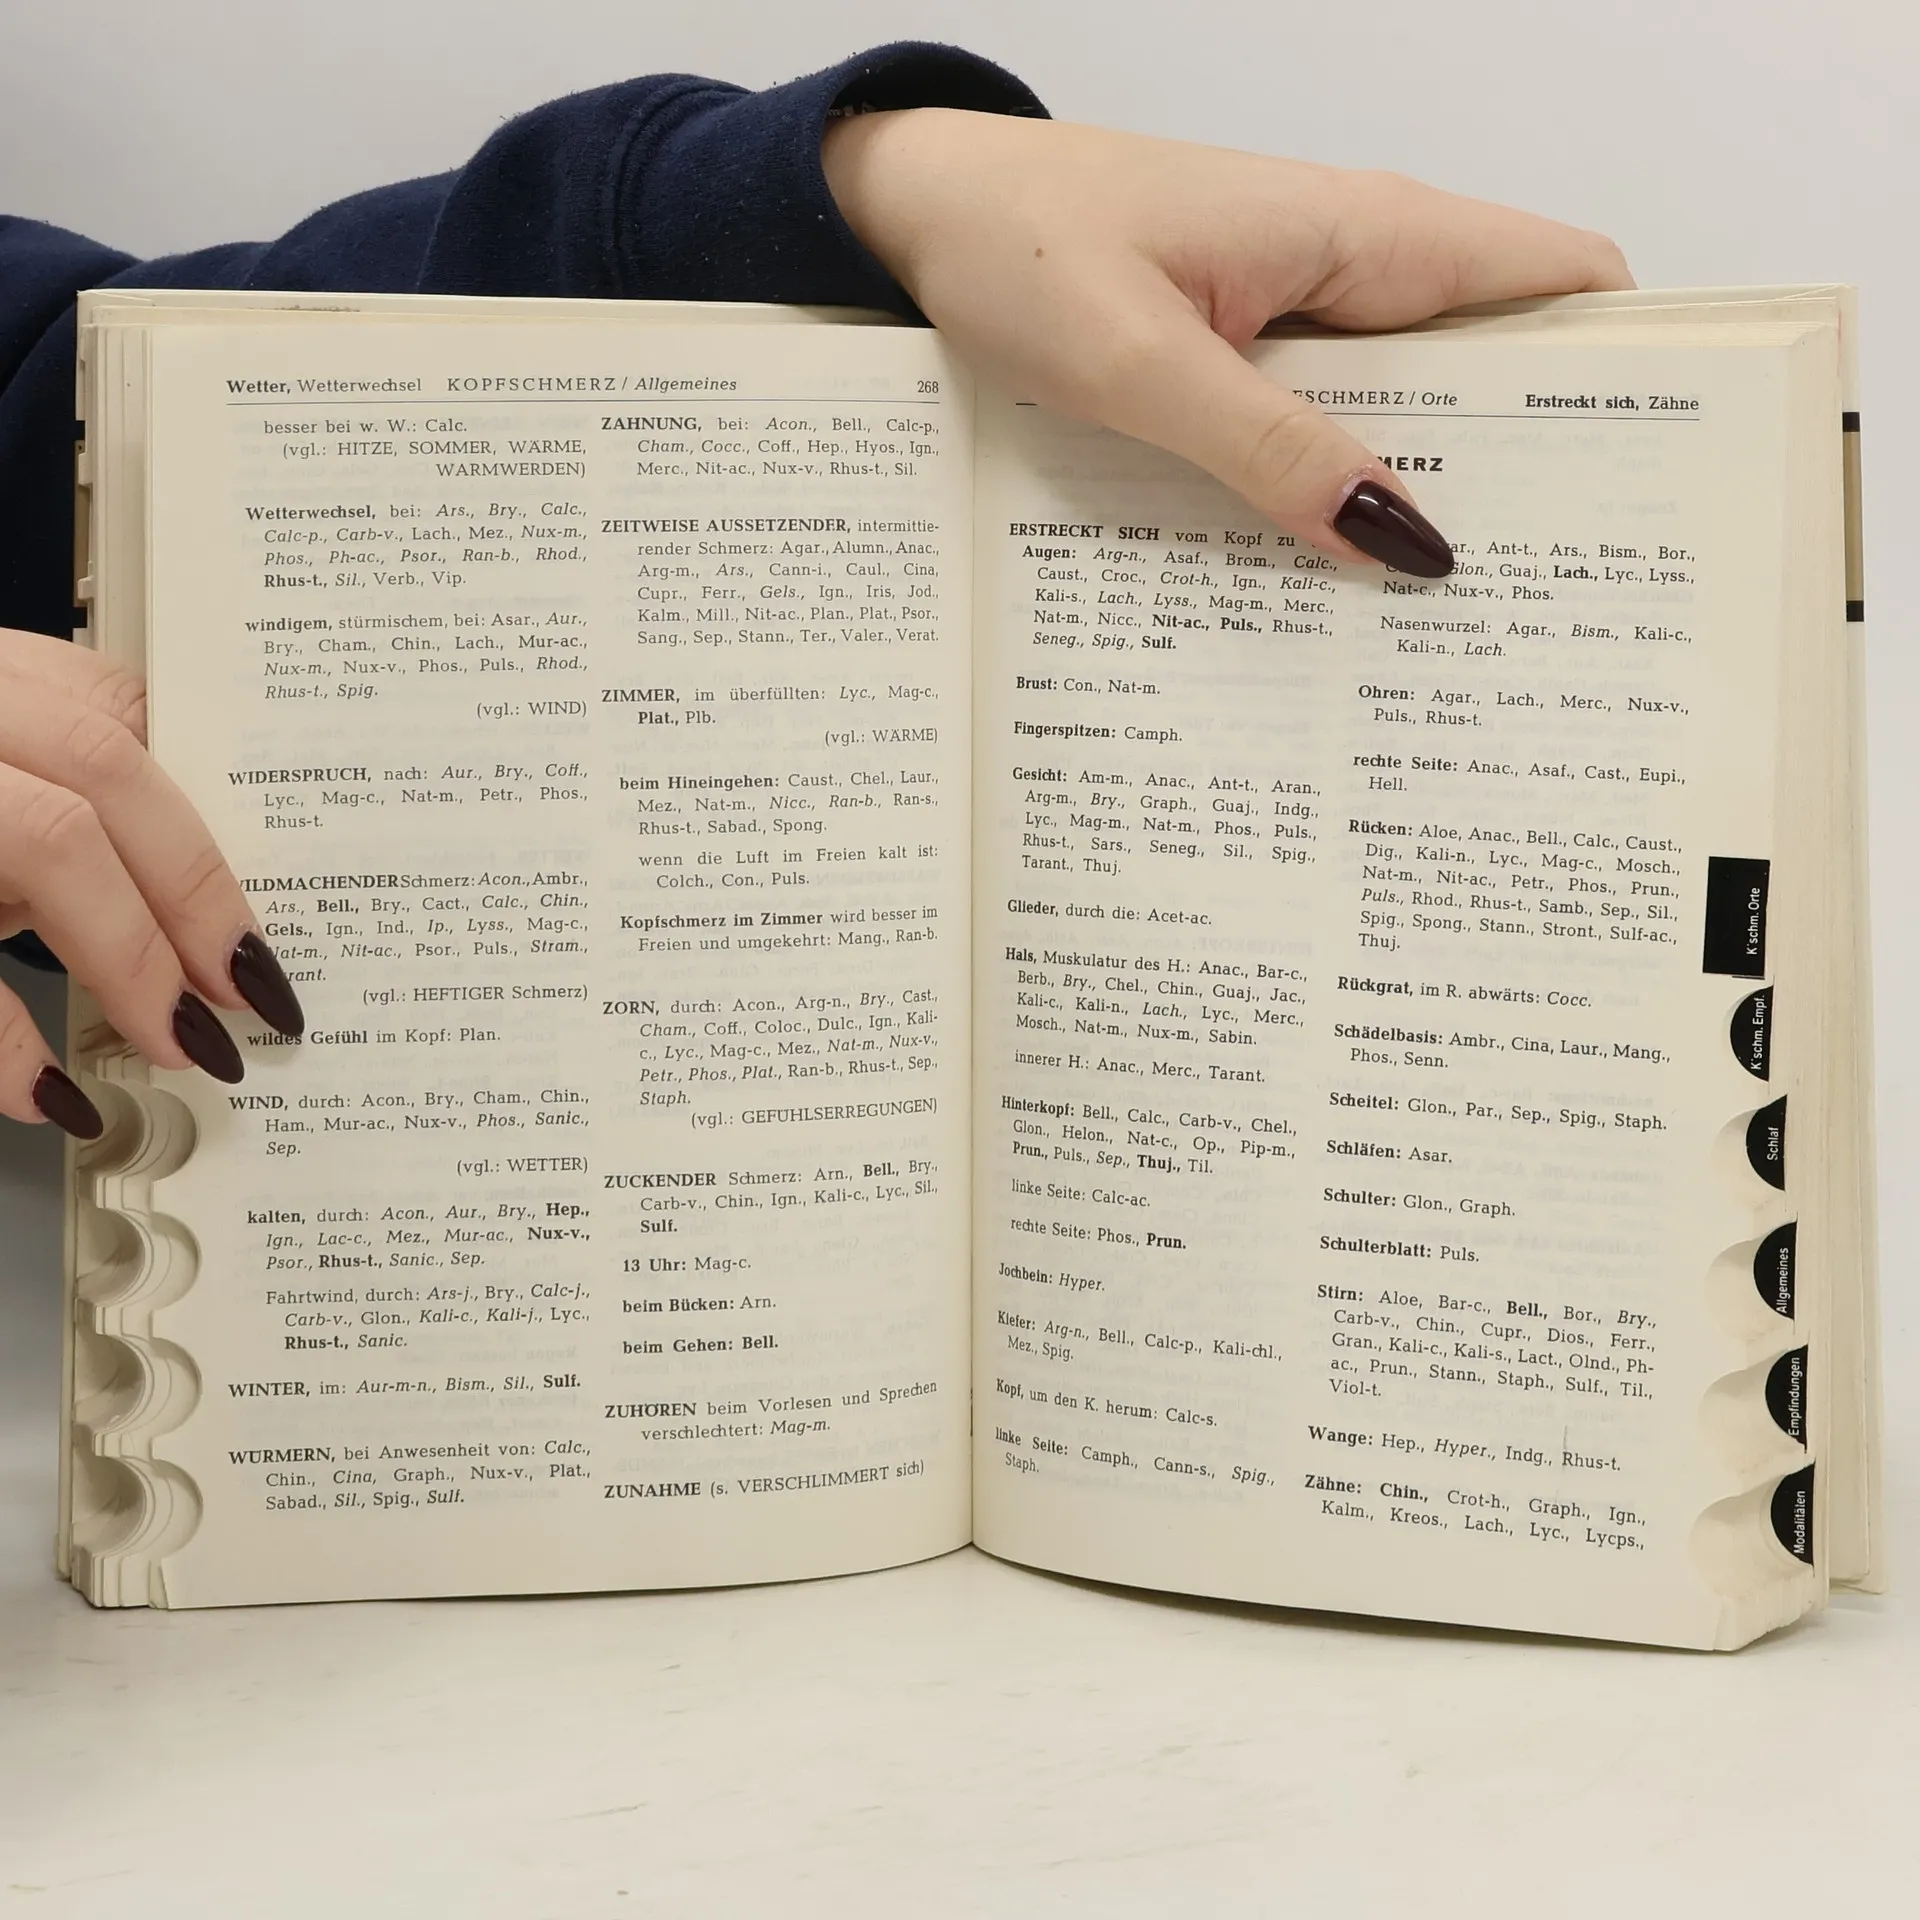 Wetter, Wetterwechsel KOPFSCHMERZ / Allgemeines 268
besser bei w. W.: Calc.
(vgl.: HITZE, SOMMER, WÄRME,
WARMWERDEN)
Wetterwechsel, bei: Ars., Bry., Calc.,
Calc-p., Carb-v., Lach., Mez., Nux-m.,
Phos., Ph-ac., Psor., Ran-b., Rhod.,
Rhus-t., Sil., Verb., Vip.
windigem, stürmischem, bei: Asar., Aur.,
Bry., Cham., Chin., Lach., Mur-ac.,
Nux-m., Nux-v., Phos., Puls., Rhod.,
Rhus-t., Spig.
(vgl.: WIND)
WIDERSPRUCH, nach: Aur., Bry., Coff.,
Lyc., Mag-c., Nat-m., Petr., Phos.,
Rhus-t.
WILDMACHENDER Schmerz: Acon., Ambr.,
Ars., Bell., Bry., Cact., Calc., Chin.,
Gels., Ign., Ind., Ip., Lyss., Mag-c.,
Nat-m., Nit-ac., Psor., Puls., Stram.,
(vgl.: HEFTIGER Schmerz)
wildes Gefühl im Kopf: Plan.
WIND, durch: Acon., Bry., Cham., Chin.,
Ham., Mur-ac., Nux-v., Phos., Sanic.,
Sep.
(vgl.: WETTER)
kalten, durch: Acon., Aur., Bry., Hep.,
Ign., Lac-c., Mez., Mur-ac., Nux-v.,
Psor., Rhus-t., Sanic., Sep.
Fahrtwind, durch: Ars-j., Bry., Calc-j.,
Carb-v., Glon., Kali-c., Kali-j., Lyc.,
Rhus-t., Sanic.
WINTER, im: Aur-m-n., Bism., Sil., Sulf.
WÜRMERN, bei Anwesenheit von: Calc.,
Chin., Cina, Graph., Nux-v., Plat.,
Sabad., Sil., Spig., Sulf.
ZAHNUNG, bei: Acon., Bell., Calc-p.,
Cham., Cocc., Coff., Hep., Hyos., Ign.,
Merc., Nit-ac., Nux-v., Rhus-t., Sil.
ZEITWEISE AUSSETZENDER, intermittie-
render Schmerz: Agar., Alumn., Anac.,
Arg-m., Ars., Cann-i., Caul., Cina,
Cupr., Ferr., Gels., Ign., Iris, Jod.,
Kalm., Mill., Nit-ac., Plan., Plat., Psor.,
Sang., Sep., Stann., Ter., Valer., Verat.
ZIMMER, im überfüllten: Lyc., Mag-c.,
Plat., Plb.
(vgl.: WÄRME)
beim Hineingehen: Caust., Chel., Laur.,
Mez., Nat-m., Nicc., Ran-b., Ran-s.,
Rhus-t., Sabad., Spong.
wenn die Luft im Freien kalt ist:
Colch., Con., Puls.
Kopfschmerz im Zimmer wird besser im
Freien und umgekehrt: Mang., Ran-b.
ZORN, durch: Acon., Arg-n., Bry., Cast.,
Cham., Coff., Coloc., Dulc., Ign., Kali-
c., Lyc., Mag-c., Mez., Nat-m., Nux-v.,
Petr., Phos., Plat., Ran-b., Rhus-t., Sep.,
Staph.
(vgl.: GEFÜHLSERREGUNGEN)
ZUCKENDER Schmerz: Arn., Bell., Bry.,
Carb-v., Chin., Ign., Kali-c., Lyc., Sil.,
Sulf.
13 Uhr: Mag-c.
beim Bücken: Arn.
beim Gehen: Bell.
ZUHÖREN beim Vorlesen und Sprechen
verschlechtert: Mag-m.
ZUNAHME (s. VERSCHLIMMERT sich)
/ Orte Erstreckt sich, Zähne
ERSTRECKT SICH vom Kopf zu
Augen: Arg-n., Asaf., Brom., Calc.,
Caust., Croc., Crot-h., Ign., Kali-c.,
Kali-s., Lach., Lyss., Mag-m., Merc.,
Nat-m., Nicc., Nit-ac., Puls., Rhus-t.,
Seneg., Spig., Sulf.
Brust: Con., Nat-m.
Fingerspitzen: Camph.
Gesicht: Am-m., Anac., Ant-t., Aran.,
Arg-m., Bry., Graph., Guaj., Indg.,
Lyc., Mag-m., Nat-m., Phos., Puls.,
Rhus-t., Sars., Seneg., Sil., Spig.,
Tarant., Thuj.
Glieder, durch die: Acet-ac.
Hals, Muskulatur des H.: Anac., Bar-c.,
Berb., Bry., Chel., Chin., Guaj., Jac.,
Kali-c., Kali-n., Lach., Lyc., Merc.,
Mosch., Nat-m., Nux-m., Sabin.
innerer H.: Anac., Merc., Tarant.
Hinterkopf: Bell., Calc., Carb-v., Chel.,
Glon., Helon., Nat-c., Op., Pip-m.,
Prun., Puls., Sep., Thuj., Til.
linke Seite: Calc-ac.
rechte Seite: Phos., Prun.
Jochbein: Hyper.
Kiefer: Arg-n., Bell., Calc-p., Kali-chl.,
Mez., Spig.
Kopf, um den K. herum: Calc-s.
linke Seite: Camph., Cann-s., Spig.,
Staph.
Ant-t., Ars., Bism., Bor.,
Glon., Guaj., Lach., Lyc., Lyss.,
Nat-c., Nux-v., Phos.
Nasenwurzel: Agar., Bism., Kali-c.,
Kali-n., Lach.
Ohren: Agar., Lach., Merc., Nux-v.,
Puls., Rhus-t.
rechte Seite: Anac., Asaf., Cast., Eupi.,
Hell.
Rücken: Aloe, Anac., Bell., Calc., Caust.,
Dig., Kali-n., Lyc., Mag-c., Mosch.,
Nat-m., Nit-ac., Petr., Phos., Prun.,
Puls., Rhod., Rhus-t., Samb., Sep., Sil.,
Spig., Spong., Stann., Stront., Sulf-ac.,
Thuj.
Rückgrat, im R. abwärts: Cocc.
Schädelbasis: Ambr., Cina, Laur., Mang.,
Phos., Senn.
Scheitel: Glon., Par., Sep., Spig., Staph.
Schläfen: Asar.
Schulter: Glon., Graph.
Schulterblatt: Puls.
Stirn: Aloe, Bar-c., Bell., Bor., Bry.,
Carb-v., Chin., Cupr., Dios., Ferr.,
Gran., Kali-c., Kali-s., Lact., Olnd., Ph-
ac., Prun., Stann., Staph., Sulf., Til.,
Viol-t.
Wange: Hep., Hyper., Indg., Rhus-t.
Zähne: Chin., Crot-h., Graph., Ign.,
Kalm., Kreos., Lach., Lyc., Lycps.,
K'schm. Orte
K'schm. Empf.
Schlaf
Allgemeines
Empfindungen
Modalitäten